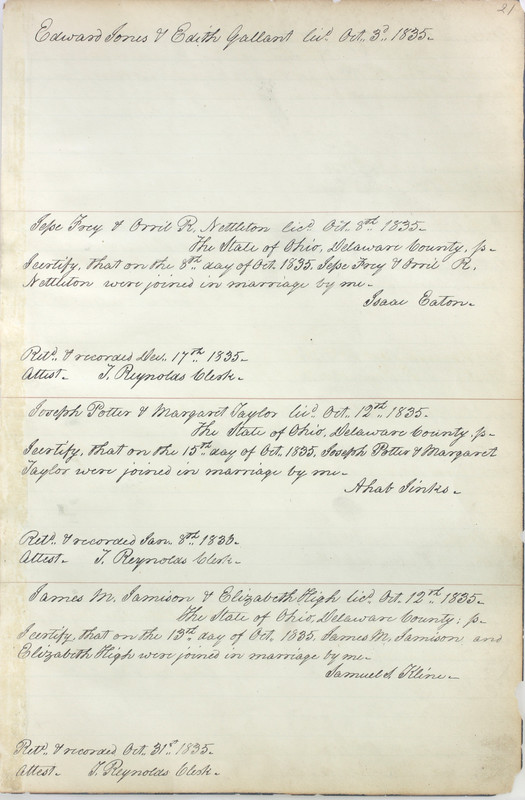 21
Edward Jones & Edith Gallant lic.d Oct. 3.d 1835.
Jesse Frey & Orril R. Nettleton lic.d Oct. 8.th 1835.
The State of Ohio, Delaware County, ss.
I certify, that on the 8.th day of Oct. 1835. Jesse Frey & Orril R.
Nettleton were joined in marriage by me.
Isaac Eaton.
Ret.d & recorded Dec. 17.th 1835.
Attest. T. Reynolds Clerk.
Joseph Potter & Margaret Taylor lic.d Oct. 12.th 1835.
The State of Ohio, Delaware County, ss.
I certify, that on the 15.th day of Oct. 1835. Joseph Potter & Margaret
Taylor were joined in marriage by me.
Ahab Jinks.
Ret.d & recorded Jan. 8.th
Attest. T. Reynolds Clerk.
James M. Jamison & Elizabeth High lic.d Oct. 12.th 1835.
The State of Ohio, Delaware County; ss.
I certify, that on the 13.th day of Oct. 1835. James M. Jamison and
Elizabeth High were joined in marriage by me.
Samuel Kline.
Ret.d & recorded Oct. 31.st 1835.
Attest. T. Reynolds Clerk.